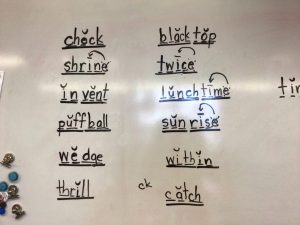 check
blacktop
shrine
twice
invent
lunchtime
tin
puffball
sunrise
wedge
within
thrill
ck
catch